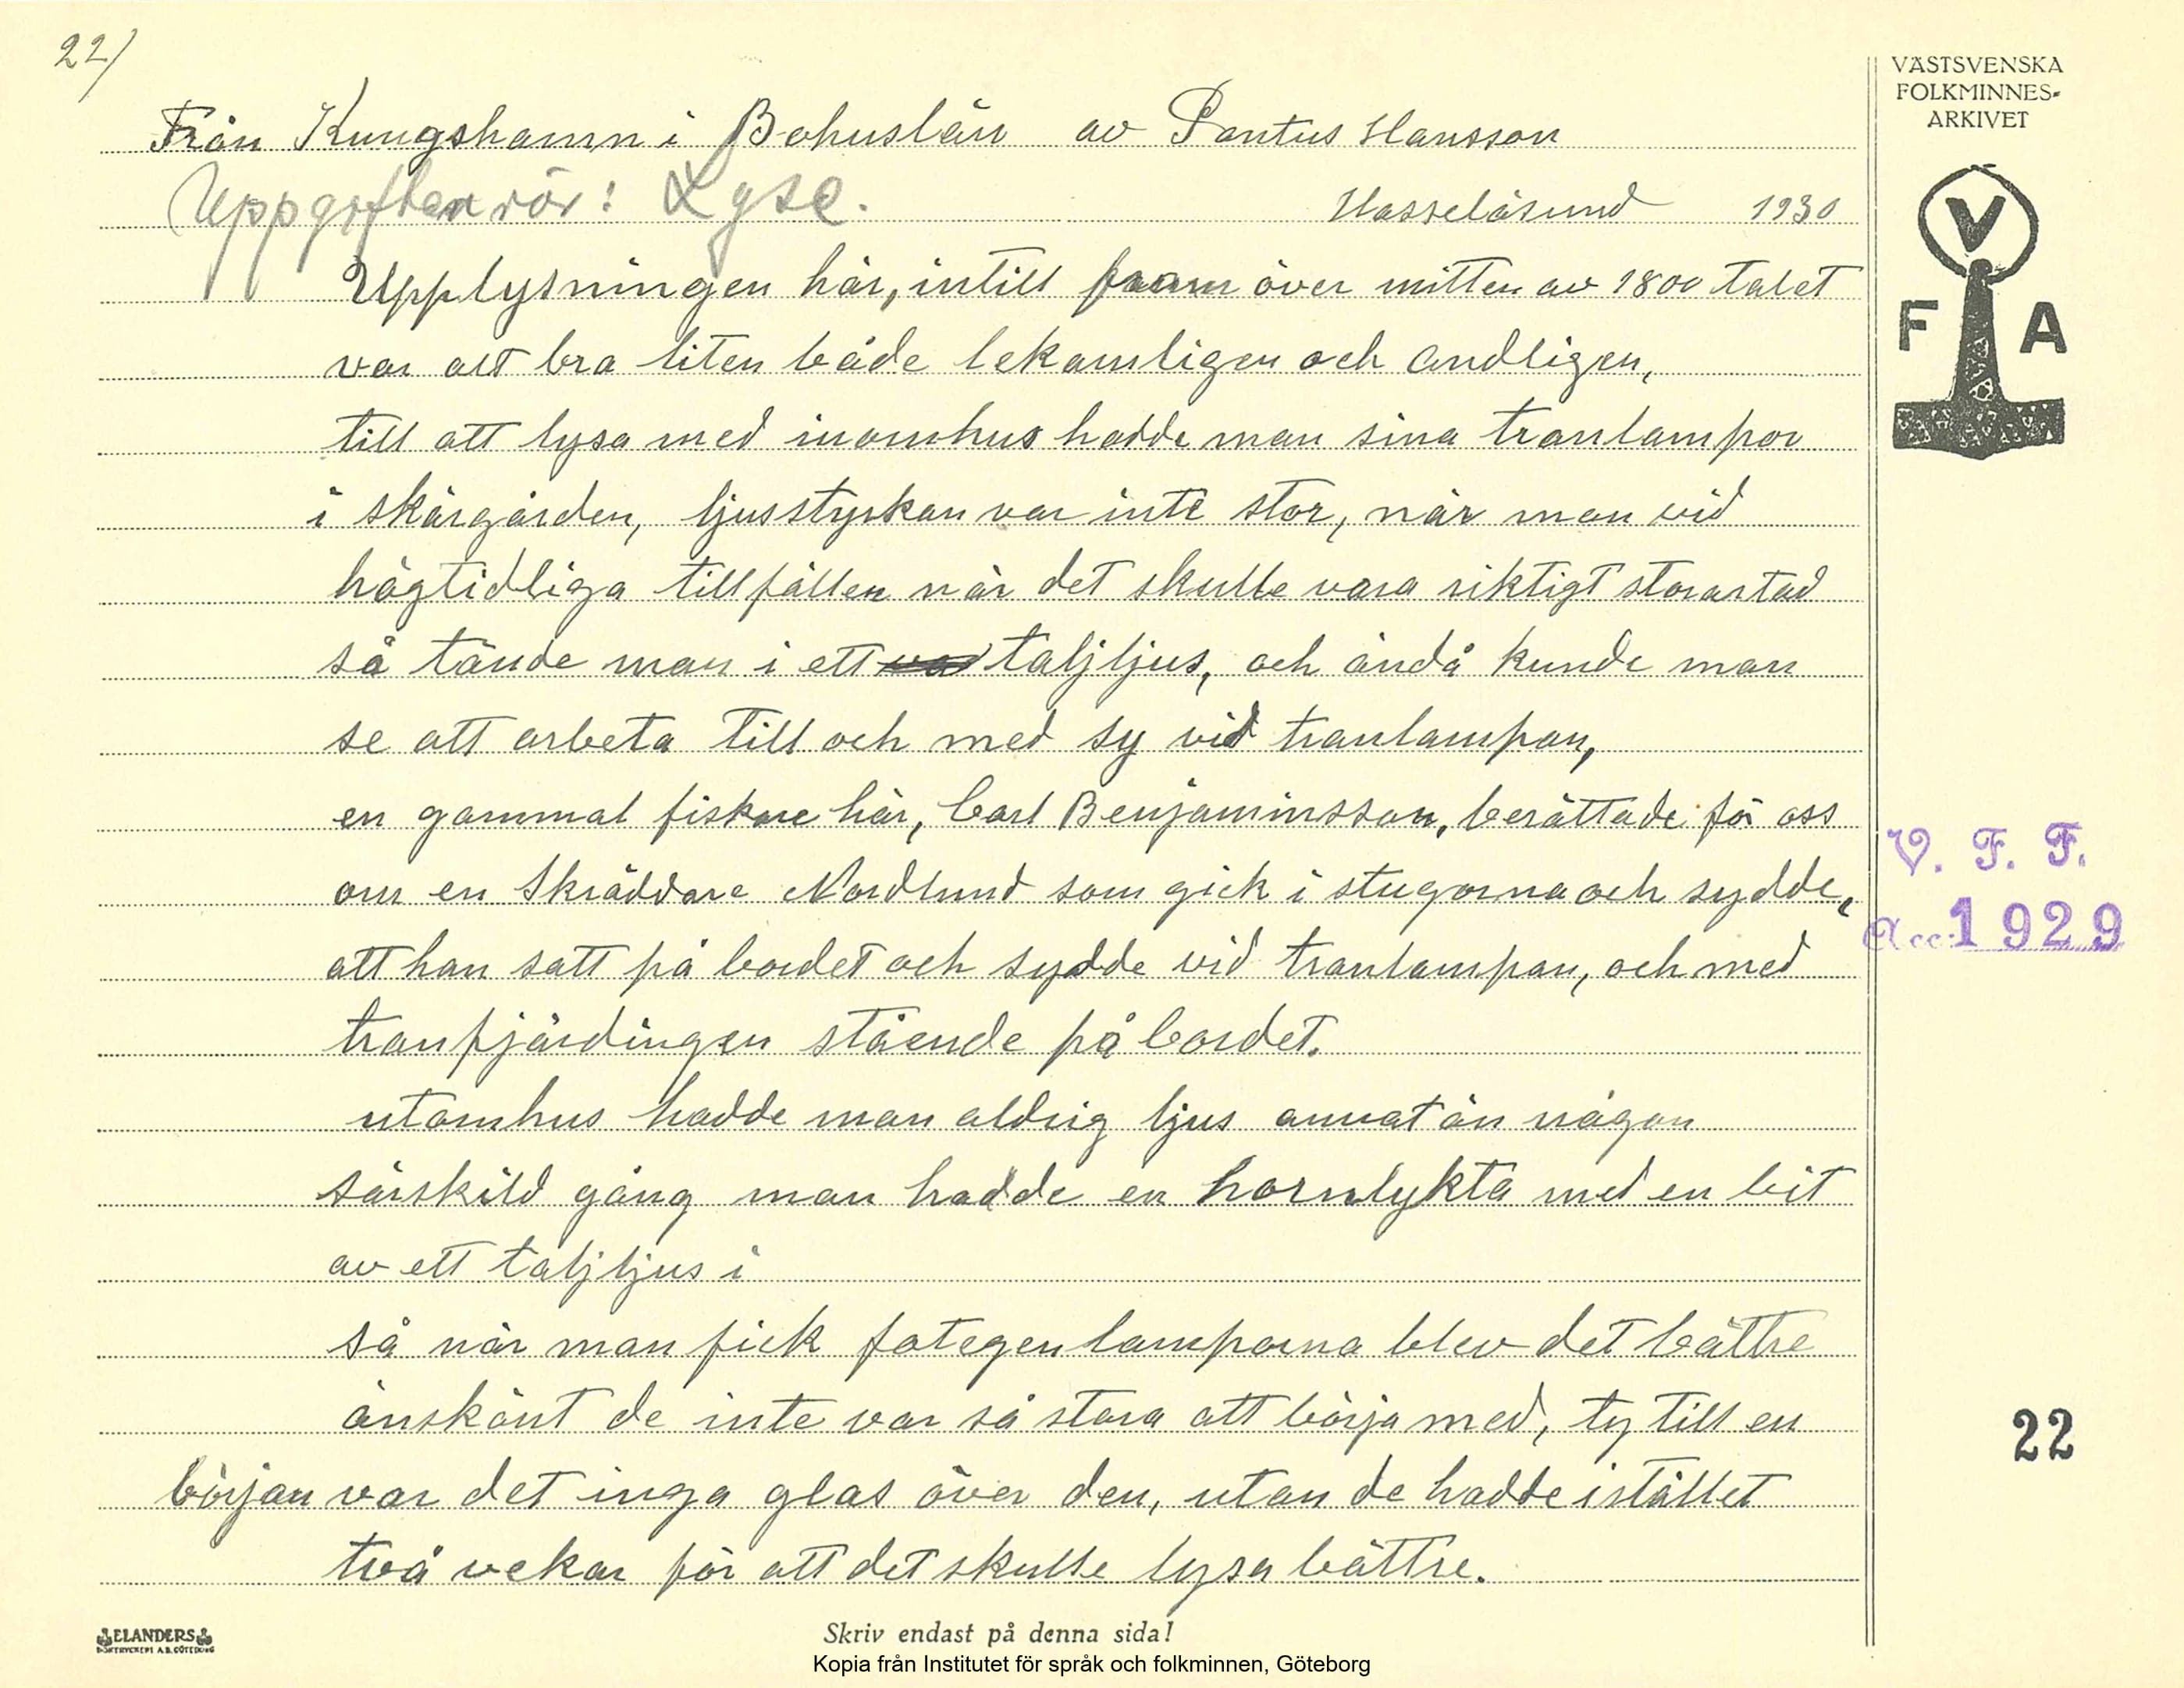 22/
VÄSTSVENSKA
FOLKMINNES-
ARKIVET
Från Kungshamn i Bohuslän av Pontus Hansson
Uppgiften rör: Lyse.
Hasselösund 1930
V
F A
Upplysningen här, intill fram över mitten av 1800 talet
var allt bra liten både lekamligen och andligen,
till att lysa med inomhus hadde man sina tranlampor
i skärgården, ljusstyrkan var inte stor, när man vid
högtidliga tillfällen när det skulle vara riktigt storartad
så tände man i ett taljljus, och ändå kunde man
se att arbeta till och med sy vid tranlampan,
en gammal fiskare här, Carl Benjaminsson, berättade för oss
om en Skräddare Nordlund som gick i stugorna och sydde,
att han satt på bordet och sydde vid tranlampan, och med
tranfjärdingen stående på bordet.
utomhus hadde man aldrig ljus annat än någon
särskild gång man hadde en hornlykta med en bit
av ett taljljus i
så när man fick fotogenlamporna blev det bättre
änskönt de inte var så stora att börja med, ty till en
början var det inga glas över den, utan de hadde istället
två vekar för att det skulle lysa bättre.
V. F. F.
Acc. 1929
22
ELANDERS
BOKTRYCKERI A.B. GÖTEBORG
Skriv endast på denna sida!
Kopia från Institutet för språk och folkminnen, Göteborg